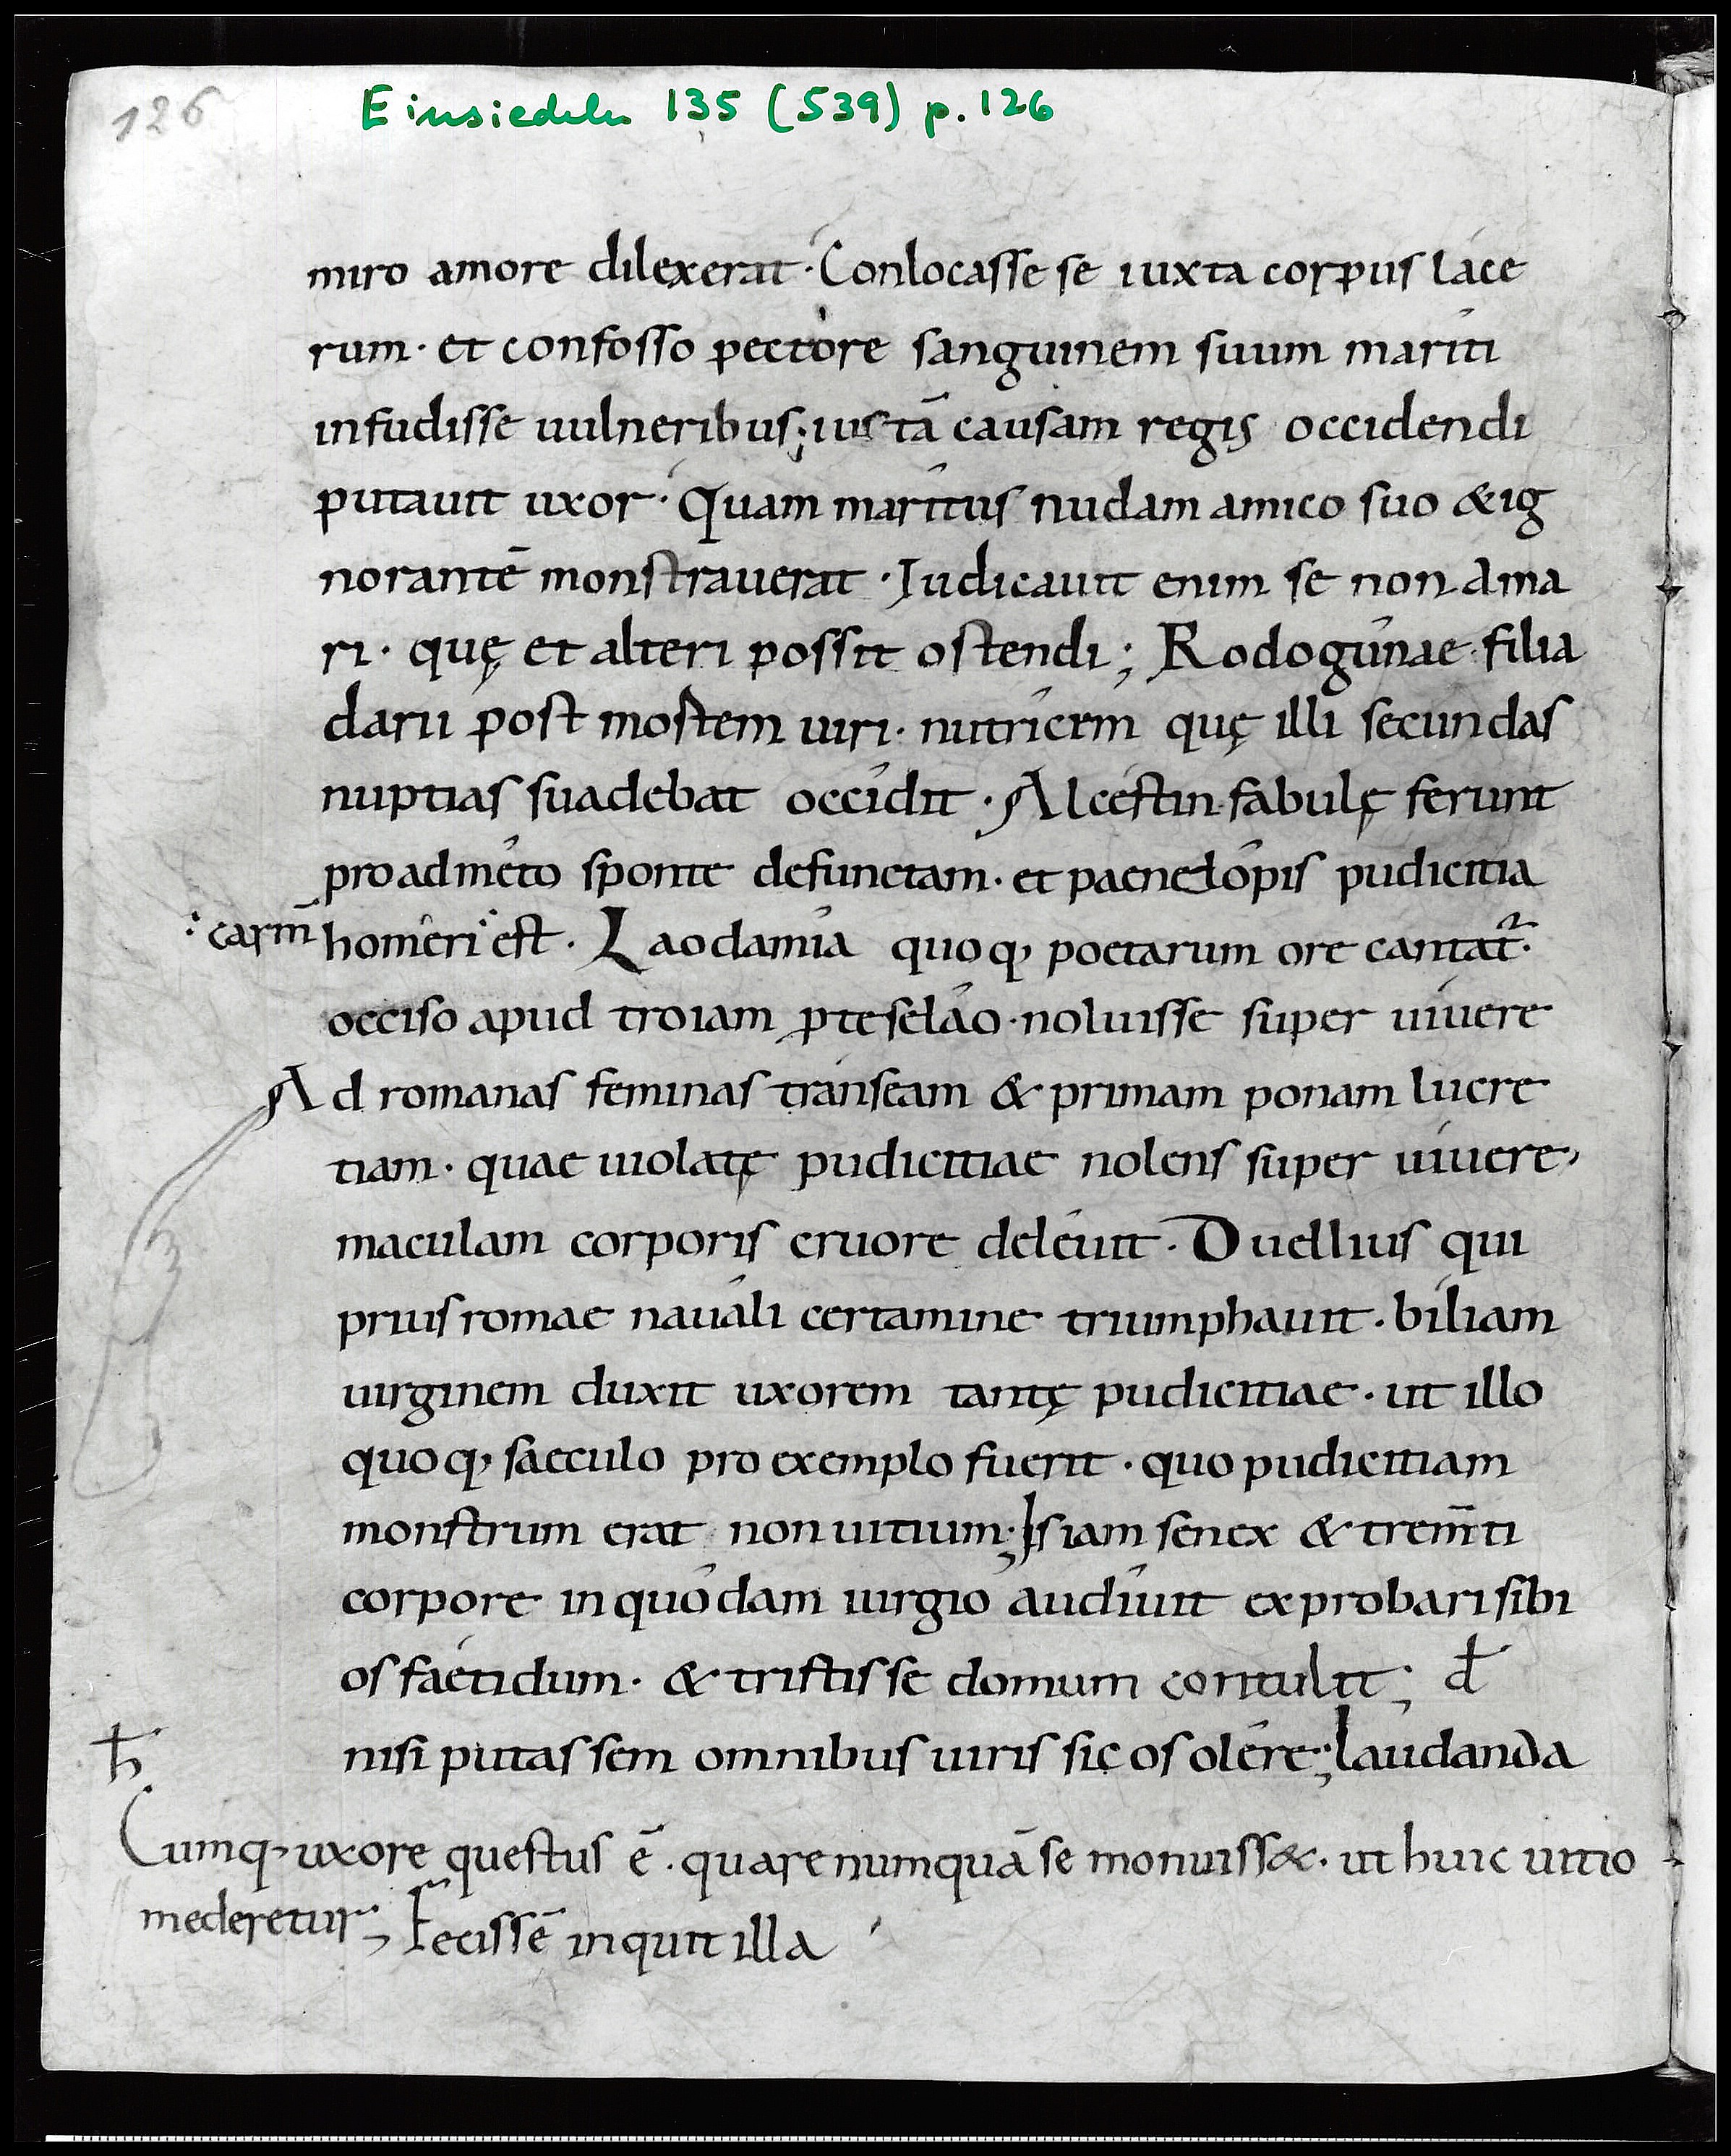 126
Einsiedeln 135 (539) p. 126
miro amore dilexerat · Conlocasse se iuxta corpus lace
rum · et confosso pectore sanguinem suum mariti
infudisse uulneribus; iustā causam regis occidendi
putauit uxor · Quam maritus nudam amico suo & ig
norantē monstrauerat · Iudicauit enim se non ama
ri · quę et alteri possit ostendi; Rodogunae filia
darii post mortem uiri · nutricem quę illi secundas
nuptias suadebat occidit · Alcestin fabulę ferunt
pro admeto sponte defunctam · et paenelopis pudicitia
: carm̄ homeri est · Laodamia quoq, poetarum ore cantat᷑ ·
occiso apud troiam pteselao · noluisse super uiuere
Ad romanas feminas transeam & primam ponam lucre
tiam · quae uiolatę pudicitiae nolens super uiuere,
maculam corporis cruore deleuit · Duellius qui
prius romae nauali certamine triumphauit · biliam
uirginem duxit uxorem tantę pudicitiae · ut illo
quoq, saeculo pro exemplo fuerit · quo pudicitiam
monstrum erat non uitium; Is iam senex & trem̄ti
corpore in quodam iurgio audiuit exprobari sibi
os faetidum · & tristis se domum contulit; đ
nisi putassem omnibus uiris sic os olere; laudanda
ħ
Cumq, uxore questus ē · quare numquā se monuiss& · ut huic uitio
mederetur; Fecissē inquit illa